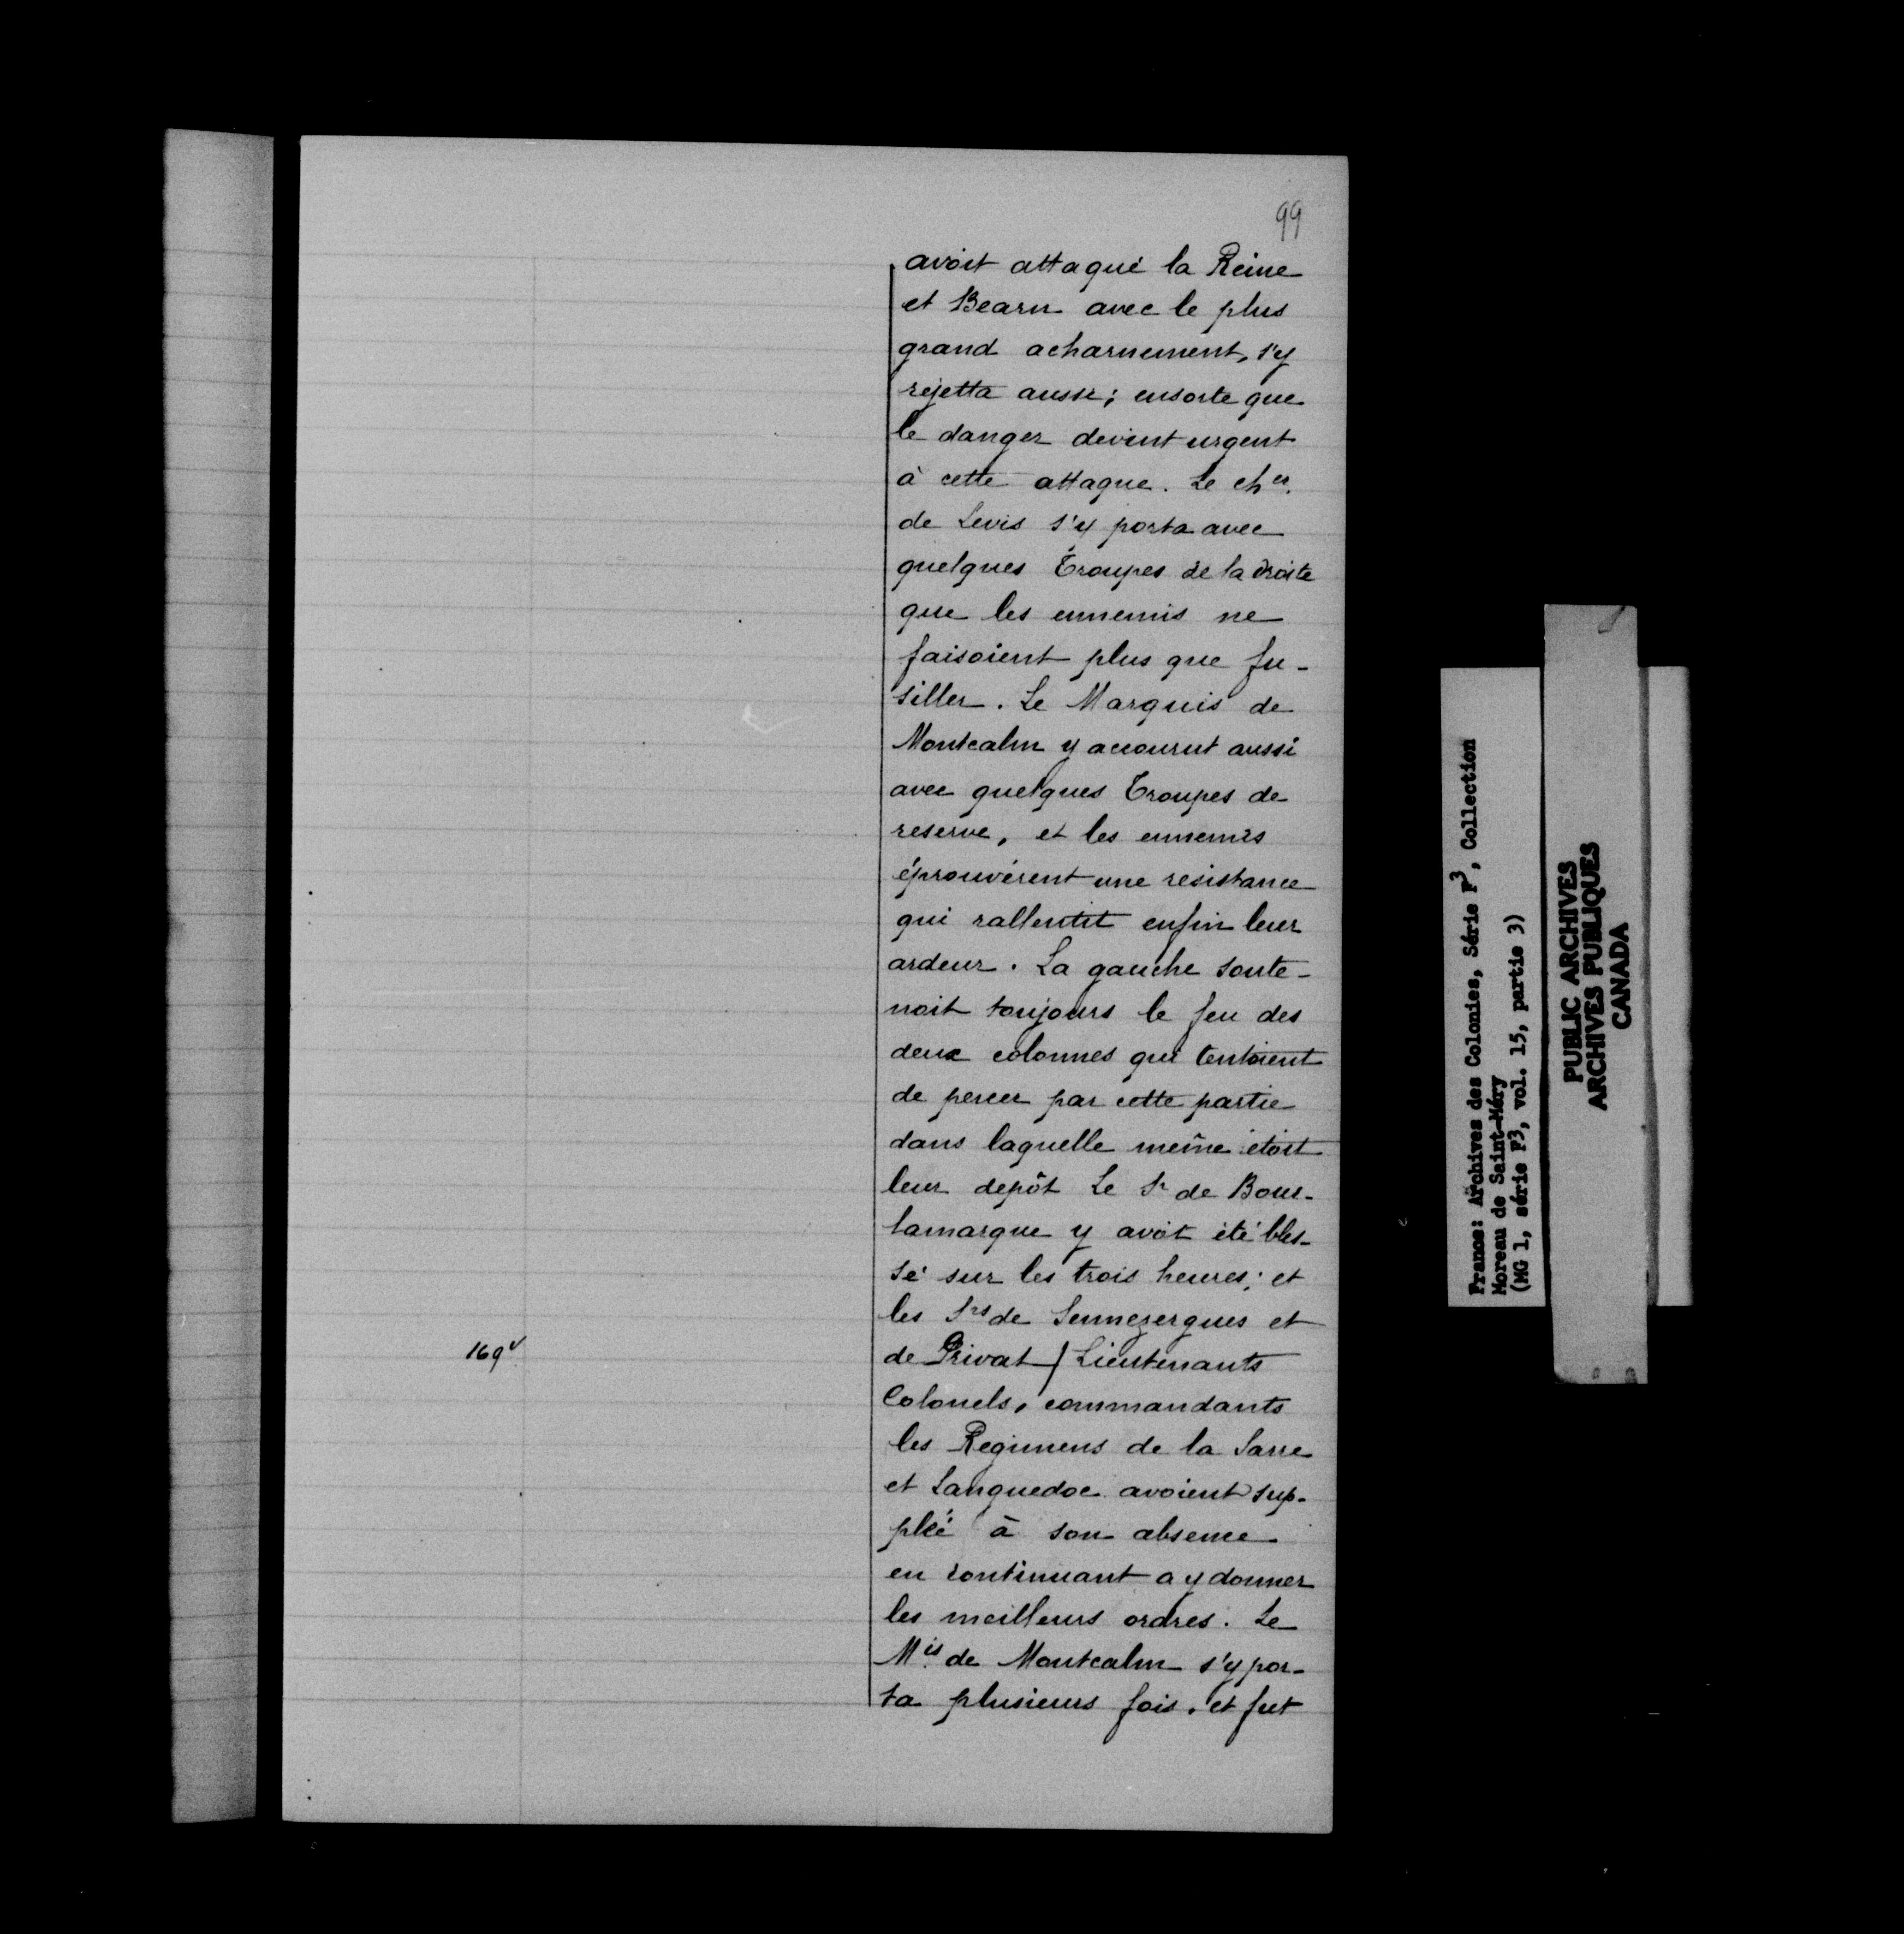 99
avoit attaqué la Reine
et Bearn avec le plus
grand acharnement, s'y
rejetta aussi; ensorte que
le danger devint urgent
à cette attaque. Le cher.
de Levis s'y porta avec
quelques Troupes de la droite
que les ennemis ne
faisoient plus que fu-
siller. Le Marquis de
Montcalm y accourut aussi
avec quelques Troupes de
reserve, et les ennemis
éprouvérent une resistance
qui rallentit enfin leur
ardeur. La gauche soute-
noit toujours le feu des
deux colonnes qui tentoient
de percer par cette partie
dans laquelle même étoit
leur depôt Le Sr de Bour-
lamarque y avoit été bles-
sé sur les trois heures; et
les Srs de Sennezergues et
169v
de Privat / Lieutenants
Colonels, commandants
les Regimens de la Sarre
et Languedoc avoient sup-
pleé à son absence
en continuant a y donner
les meilleurs ordres. Le
Mis de Montcalm s'y por-
ta plusieurs fois, et fut
France: Archives des Colonies, Série F3, Collection
Moreau de Saint-Méry
(MG 1, série F3, vol. 15, partie 3)
PUBLIC ARCHIVES
ARCHIVES PUBLIQUES
CANADA